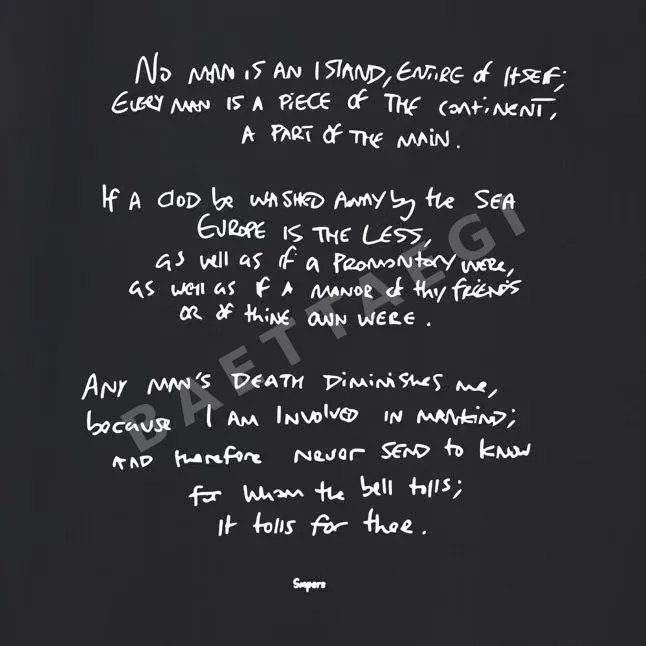 No MAN iS AN ISTAND, ENTiRE of ITSEF;
EVERY MAN iS A PiECE OF THE CONTiNENT,
A PART OF THE MAiN.
If A CloD be WASHED AWAY by the SEA
EUROPE IS THE LESS,
as well as if a PROMONTORY WERE,
as well as if A MANOR of thy FRiENDS
OR of thiNE OWN WERE.
ANY MAN'S DEATH DiMiNiSHes me,
because I AM INVOLVED iN MANKiND;
AND therefore NEVER SEND to KNOW
for Whom the bell tolls;
It tolls for thee.
BAETTAEGI